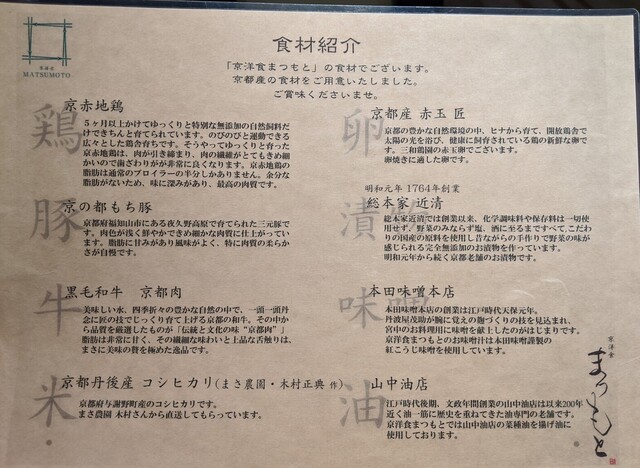 京洋食
MATSUMOTO
食材紹介
「京洋食まつもと」の食材でございます。
京都産の食材をご用意いたしました。
ご賞味くださいませ。
鶏
京赤地鶏
５ヶ月以上かけてゆっくりと特別な無添加の自然飼料だ
けできちんと育てられています。のびのびと運動できる
広々とした鶏舎育ちです。そうやってゆっくりと育った
京赤地鶏は、肉が引き締まり、肉の繊維がとてもきめ細
かいので歯ざわりがが非常に良くなります。京赤地鶏の
脂肪は通常のブロイラーの半分しかありません。余分な
脂肪がないため、味に深みがあり、最高の肉質です。
豚
京の都もち豚
京都府福知山市にある夜久野高原で育てられた三元豚で
す。肉色が浅く鮮やかできめ細かな肉質に仕上がってい
ます。脂肪に甘みがあり風味がよく、特に肉質の柔らか
さが自慢です。
牛
黒毛和牛 京都肉
美味しい水、四季折々の豊かな自然の中で、一頭一頭丹
念に匠の技でじっくり育て上げる京都の和牛。その中か
ら品質を厳選したものが「伝統と文化の味“京都肉”」
脂肪は非常に甘く、その繊細な味わいと上品な舌触りは、
まさに美味の贅を極めた逸品です。
米
京都丹後産 コシヒカリ(まさ農園・木村正典 作)
京都府与謝野町産のコシヒカリです。
まさ農園 木村さんから直送してもらっています。
卵
京都産 赤玉 匠
京都の豊かな自然環境の中、ヒナから育て、開放鶏舎で
太陽の光を浴び、健康に飼育されている鶏の新鮮な卵で
す。三和鶏園の赤玉卵でございます。
卵焼きに適した卵です。
漬
明和元年 1764年創業
総本家 近清
総本家近清では創業以来、化学調味料や保存料は一切使
用せず、野菜のみならず塩、酒に至るまですべて、こだわ
りの国産の原料を使用し昔ながらの手作りで野菜の味が
感じられる完全無添加のお漬物を作っています。
明和元年から続く京都老舗のお漬物です。
味噌
本田味噌本店
本田味噌本店の創業は江戸時代天保元年。
丹波屋茂助が腕に覚えの麹づくりの技を見込まれ、
宮中のお料理用に味噌を献上したのがはじまりです。
京洋食まつもとのお味噌汁は本田味噌謹製の
紅こうじ味噌を使用しています。
油
山中油店
江戸時代後期、文政年間創業の山中油店は以来200年
近く油一筋に歴史を重ねてきた油専門の老舗です。
京洋食まつもとでは山中油店の菜種油を揚げ油に
使用しております。
京洋食
まつもと